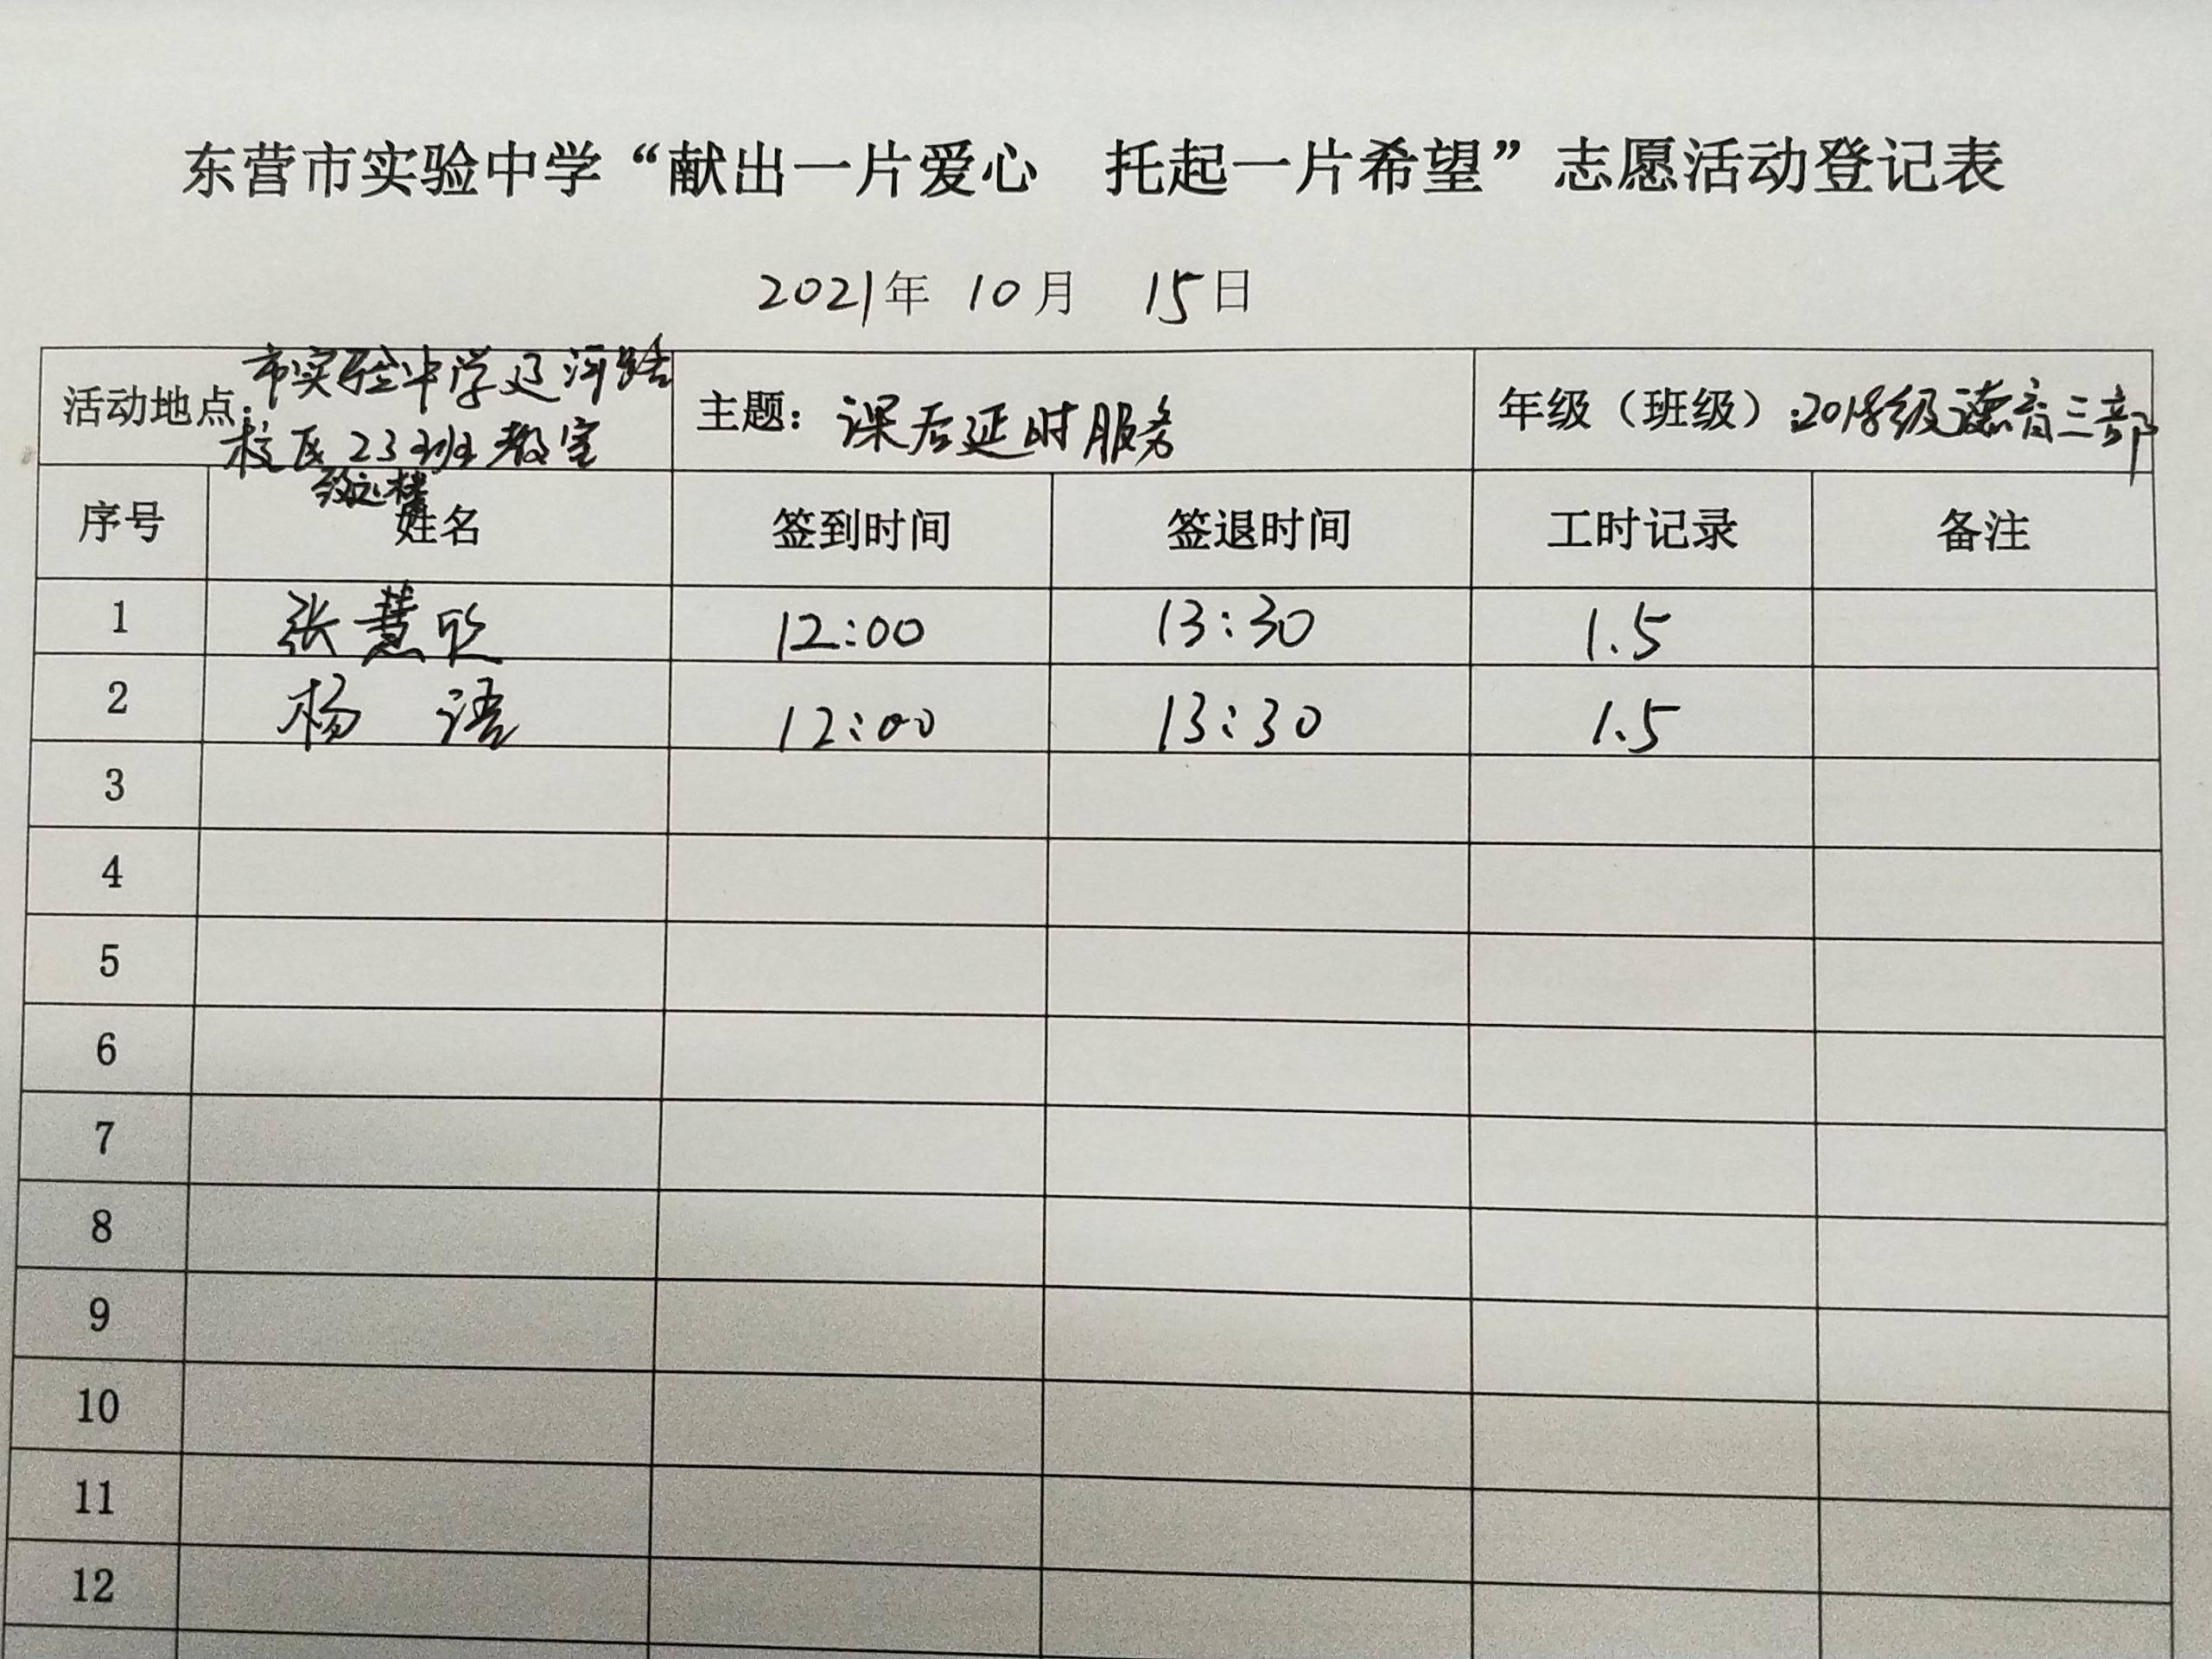 东营市实验中学“献出一片爱心 托起一片希望”志愿活动登记表
2021年 10月 15日
活动地点：市实验中学辽河路
校区23班教室
主题：课后延时服务
年级（班级）：2018级德育三部
序号 姓名 签到时间 签退时间 工时记录 备注
1 张慧欣 12:00 13:30 1.5
2 杨语 12:00 13:30 1.5
3
4
5
6
7
8
9
10
11
12